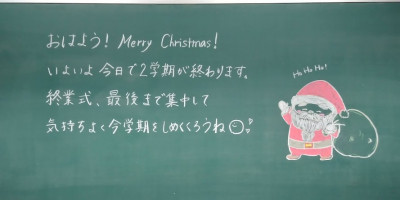 おはよう! Merry Christmas!
いよいよ今日で2学期が終わります。
終業式、最後まで集中して
気持ちよく今学期をしめくくろうね
Ho Ho Ho!